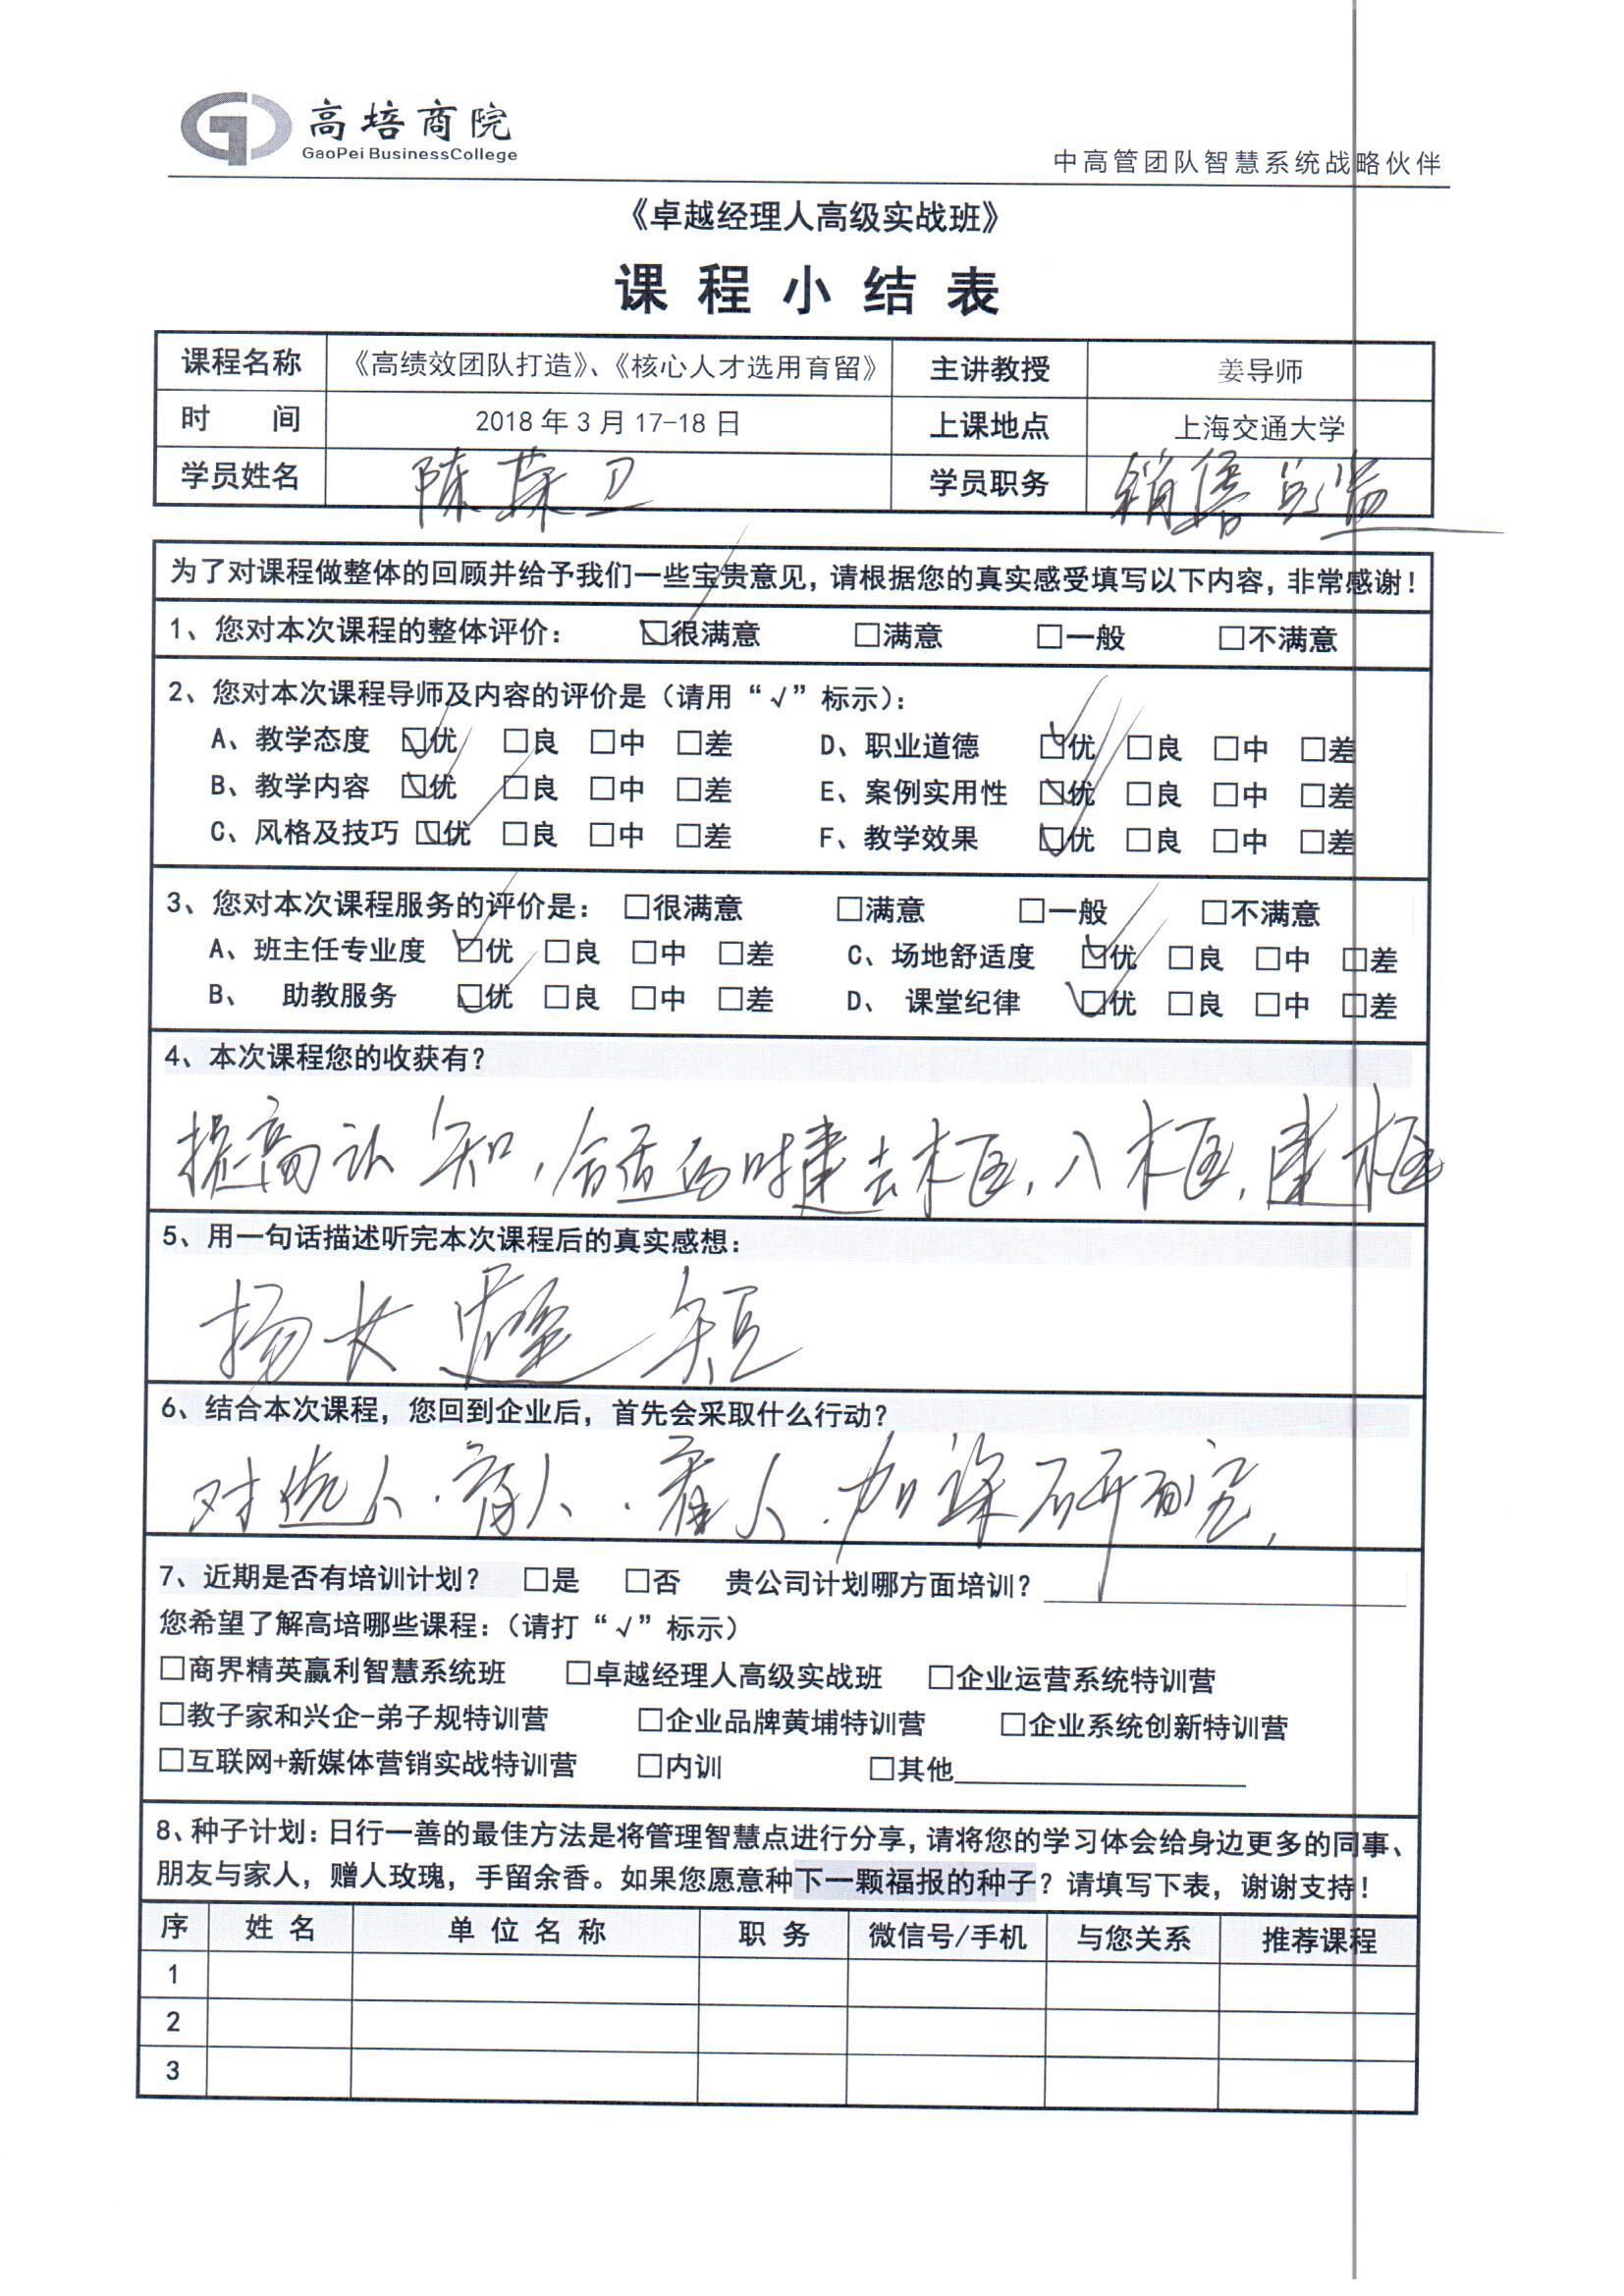 高培商院
GaoPei BusinessCollege
中高管团队智慧系统战略伙伴
《卓越经理人高级实战班》
课程小结表
课程名称 《高绩效团队打造》、《核心人才选用育留》 主讲教授 姜导师
时 间 2018年3月17-18日 上课地点 上海交通大学
学员姓名 陈 卫 学员职务 销售总监
为了对课程做整体的回顾并给予我们一些宝贵意见，请根据您的真实感受填写以下内容，非常感谢！
1、您对本次课程的整体评价： ☑很满意 □满意 □一般 □不满意
2、您对本次课程导师及内容的评价是（请用“√”标示）：
A、教学态度 ☑优 □良 □中 □差 D、职业道德 ☑优 □良 □中 □差
B、教学内容 ☑优 □良 □中 □差 E、案例实用性 ☑优 □良 □中 □差
C、风格及技巧 ☑优 □良 □中 □差 F、教学效果 ☑优 □良 □中 □差
3、您对本次课程服务的评价是： □很满意 □满意 □一般 □不满意
A、班主任专业度 ☑优 □良 □中 □差 C、场地舒适度 ☑优 □良 □中 □差
B、 助教服务 ☑优 □良 □中 □差 D、 课堂纪律 ☑优 □良 □中 □差
4、本次课程您的收获有？
提高认知，合适的时 去框，入框，建框
5、用一句话描述听完本次课程后的真实感想：
扬长避短
6、结合本次课程，您回到企业后，首先会采取什么行动？
对选人.育人.看人.加深研究.
7、近期是否有培训计划？ □是 □否 贵公司计划哪方面培训？
您希望了解高培哪些课程：（请打“√”标示）
□商界精英赢利智慧系统班 □卓越经理人高级实战班 □企业运营系统特训营
□教子家和兴企-弟子规特训营 □企业品牌黄埔特训营 □企业系统创新特训营
□互联网+新媒体营销实战特训营 □内训 □其他
8、种子计划：日行一善的最佳方法是将管理智慧点进行分享，请将您的学习体会给身边更多的同事、
朋友与家人，赠人玫瑰，手留余香。如果您愿意种下一颗福报的种子？请填写下表，谢谢支持！
序 姓名 单位名称 职务 微信号/手机 与您关系 推荐课程
1
2
3